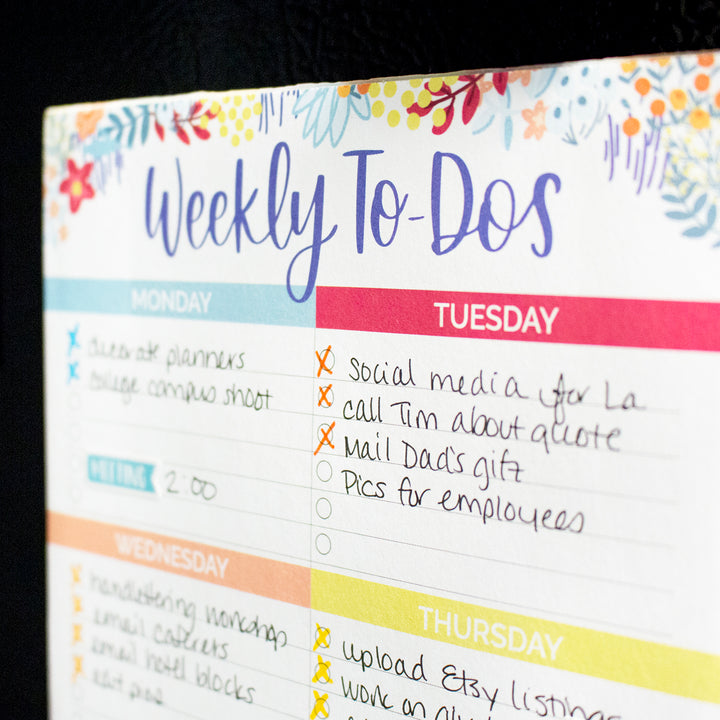 Weekly To-Dos
MONDAY
decorate planners
college campus shoot
MEETING 2:00
TUESDAY
social media for La
call Tim about quote
Mail Dad's gift
Pics for employees
WEDNESDAY
handlettering workshop
email caterers
email hotel blocks
THURSDAY
upload Etsy listings
work on